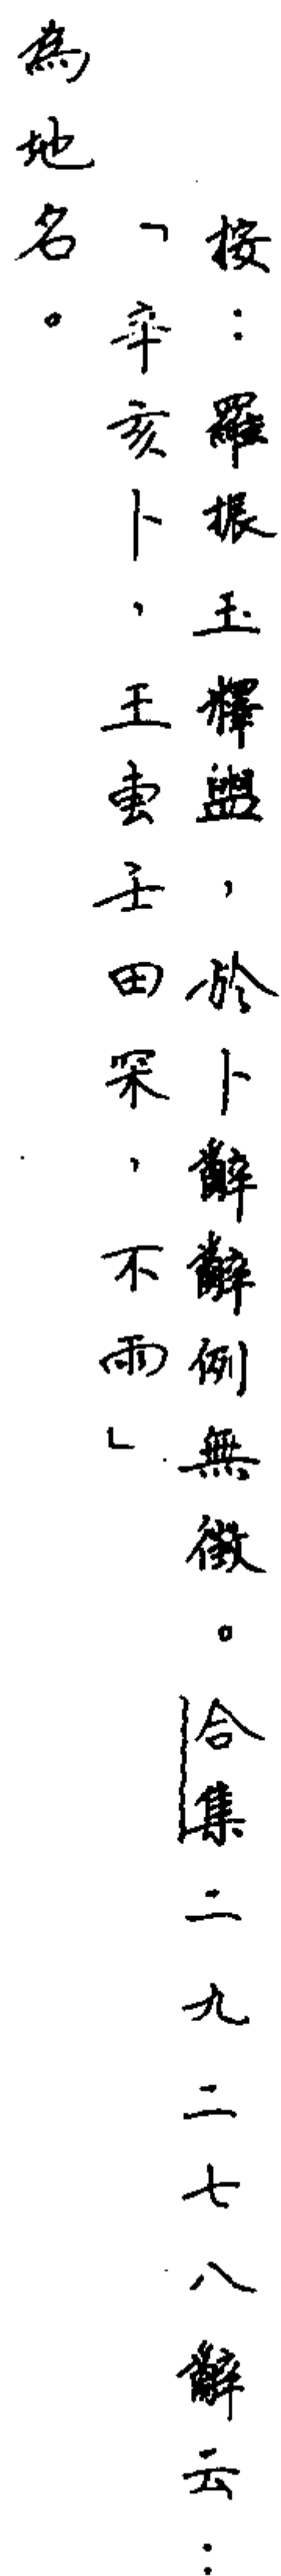 按：羅振玉釋盥，於卜辭辭例無徵。合集二九二七八辭云：
「辛亥卜，王叀壬田罙，不雨」
為地名。